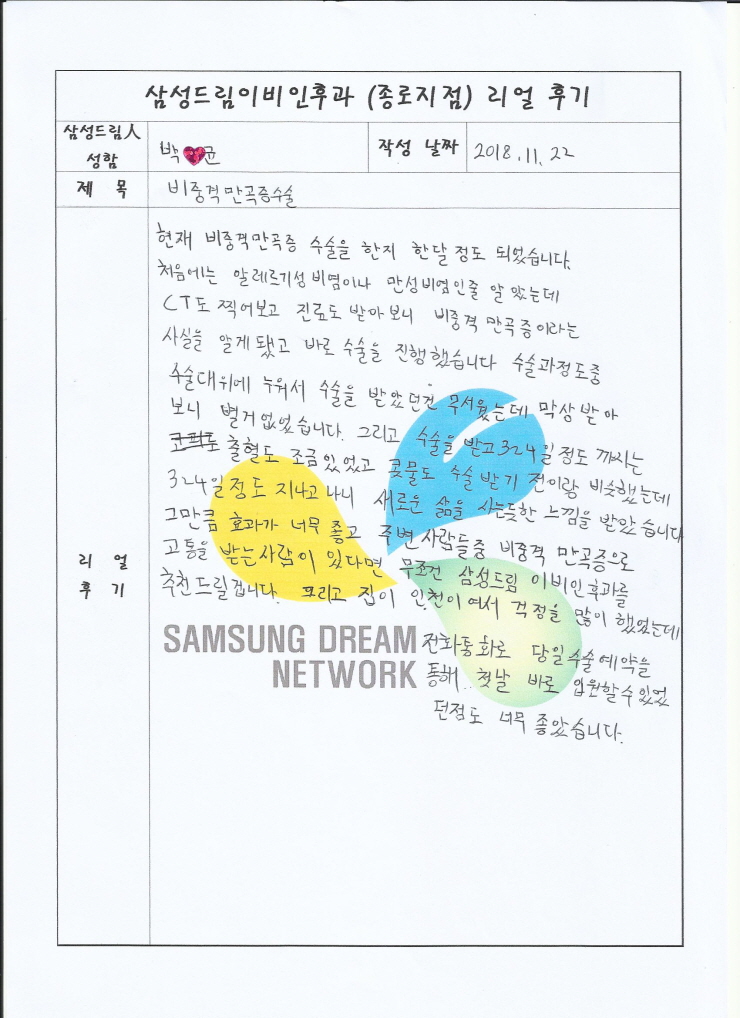 삼성드림이비인후과 (종로지점) 리얼 후기
삼성드림人 성함
박♥균
작성 날짜
2018.11.22
제 목
비중격만곡증수술
리 얼 후 기
현재 비중격만곡증 수술을 한지 한달정도 되었습니다.
처음에는 알레르기성비염이나 만성비염인줄 알았는데
CT도 찍어보고 진료도 받아보니 비중격 만곡증이라는
사실을 알게됐고 바로 수술을 진행했습니다 수술과정도중
수술대위에 누워서 수술을 받았던건 무서웠는데 막상받아
보니 별거없었습니다. 그리고 수술을 받고 3~4일정도 까지는
출혈도 조금있었고 콧물도 수술 받기 전이랑 비슷했는데
3~4일정도 지나고나니 새로운 삶을 사는듯한 느낌을 받았습니다
그만큼 효과가 너무 좋고 주변사람들중 비중격 만곡증으로
고통을 받는사람이 있다면 무조건 삼성드림 이비인후과를
추천드릴겁니다. 그리고 집이 인천이여서 걱정을 많이 했었는데
전화통화로 당일수술예약을
통해 첫날 바로 입원할수있었
던점도 너무 좋았습니다.
SAMSUNG DREAM
NETWORK